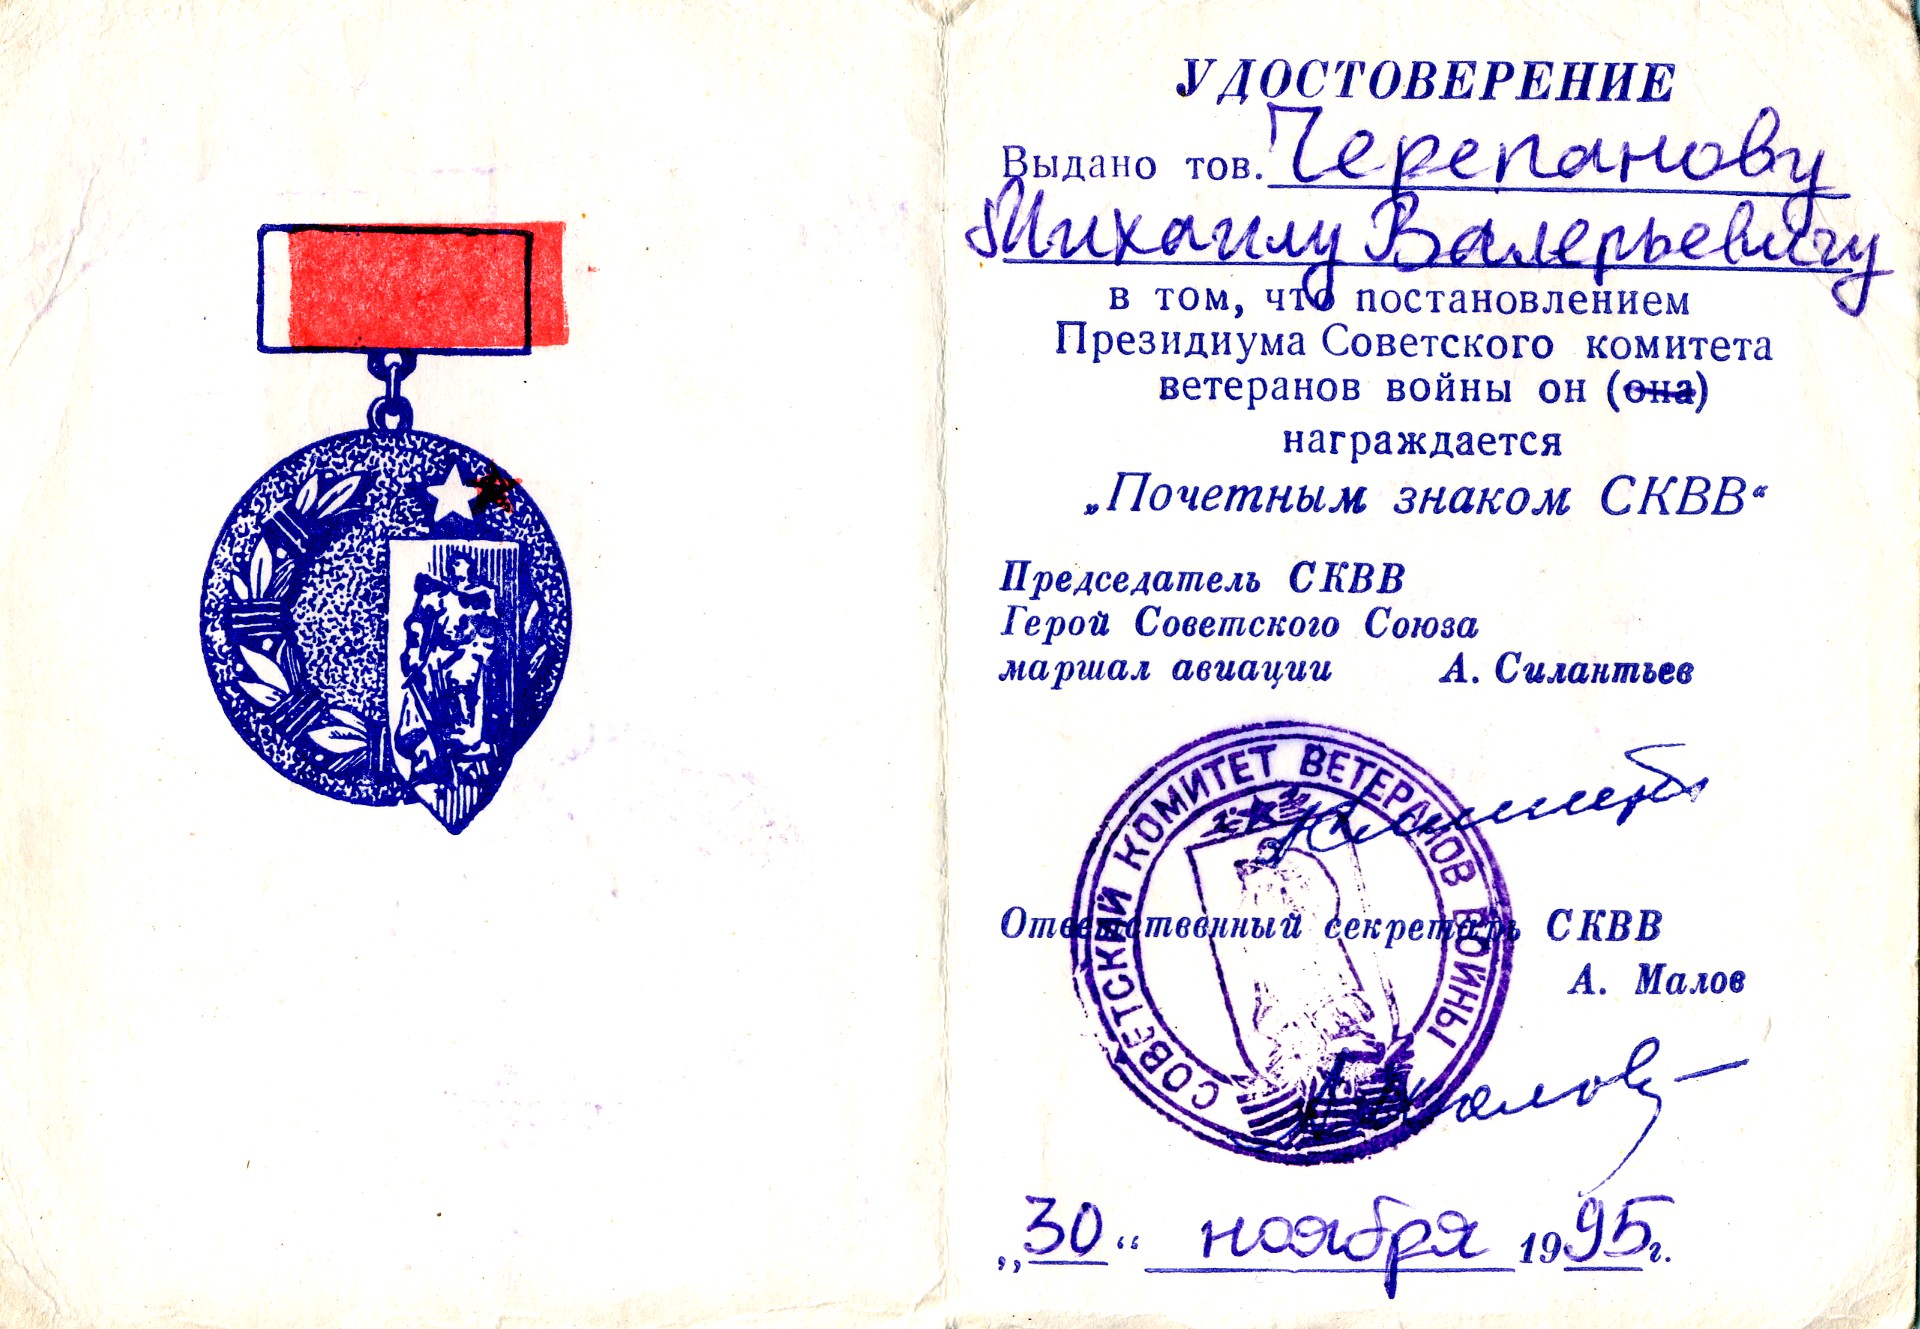 УДОСТОВЕРЕНИЕ
Выдано тов. Черепанову
Михаилу Валерьевичу
в том, что постановлением
Президиума Советского комитета
ветеранов войны он (она)
награждается
„Почетным знаком СКВВ“
Председатель СКВВ
Герой Советского Союза
маршал авиации А. Силантьев
СОВЕТСКИЙ КОМИТЕТ ВЕТЕРАНОВ ВОЙНЫ
Ответственный секретарь СКВВ
А. Малов
„30“ ноября 1995г.